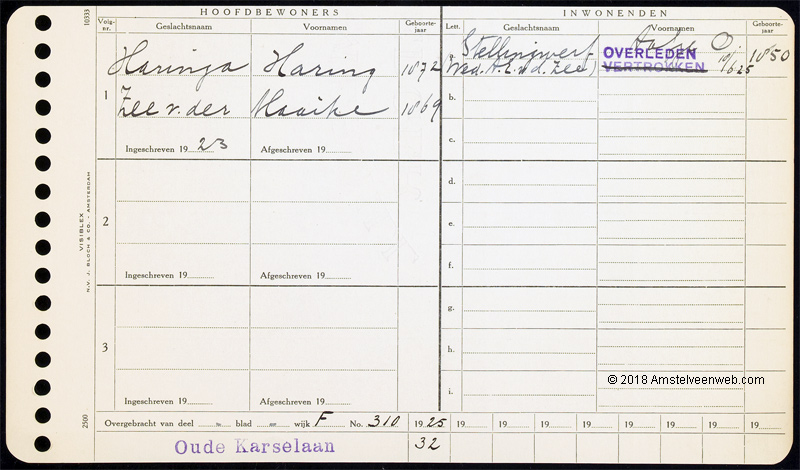 HOOFDBEWONERS
Volg-nr. Geslachtsnaam Voornamen Geboorte-jaar
1 Haringa Haring 1872
Zee v. der Maaike 1869
Ingeschreven 19 23 Afgeschreven 19
2
Ingeschreven 19 Afgeschreven 19
3
Ingeschreven 19 Afgeschreven 19
INWONENDEN
Lett. Geslachtsnaam Voornamen Geboorte-jaar
a. Stellingwerf 1850
Wed. A.E. v.d. Zee)
OVERLEDEN
VERTROKKEN
10/6 25
b.
c.
d.
e.
f.
g.
h.
i.
© 2018 Amstelveenweb.com
Overgebracht van deel blad wijk F No. 310 19 25 19 19 19 19 19 19 19 19
Oude Karselaan 32
10333
VISIBLEX
N.V. J. BLOCH & CO. - AMSTERDAM
2500